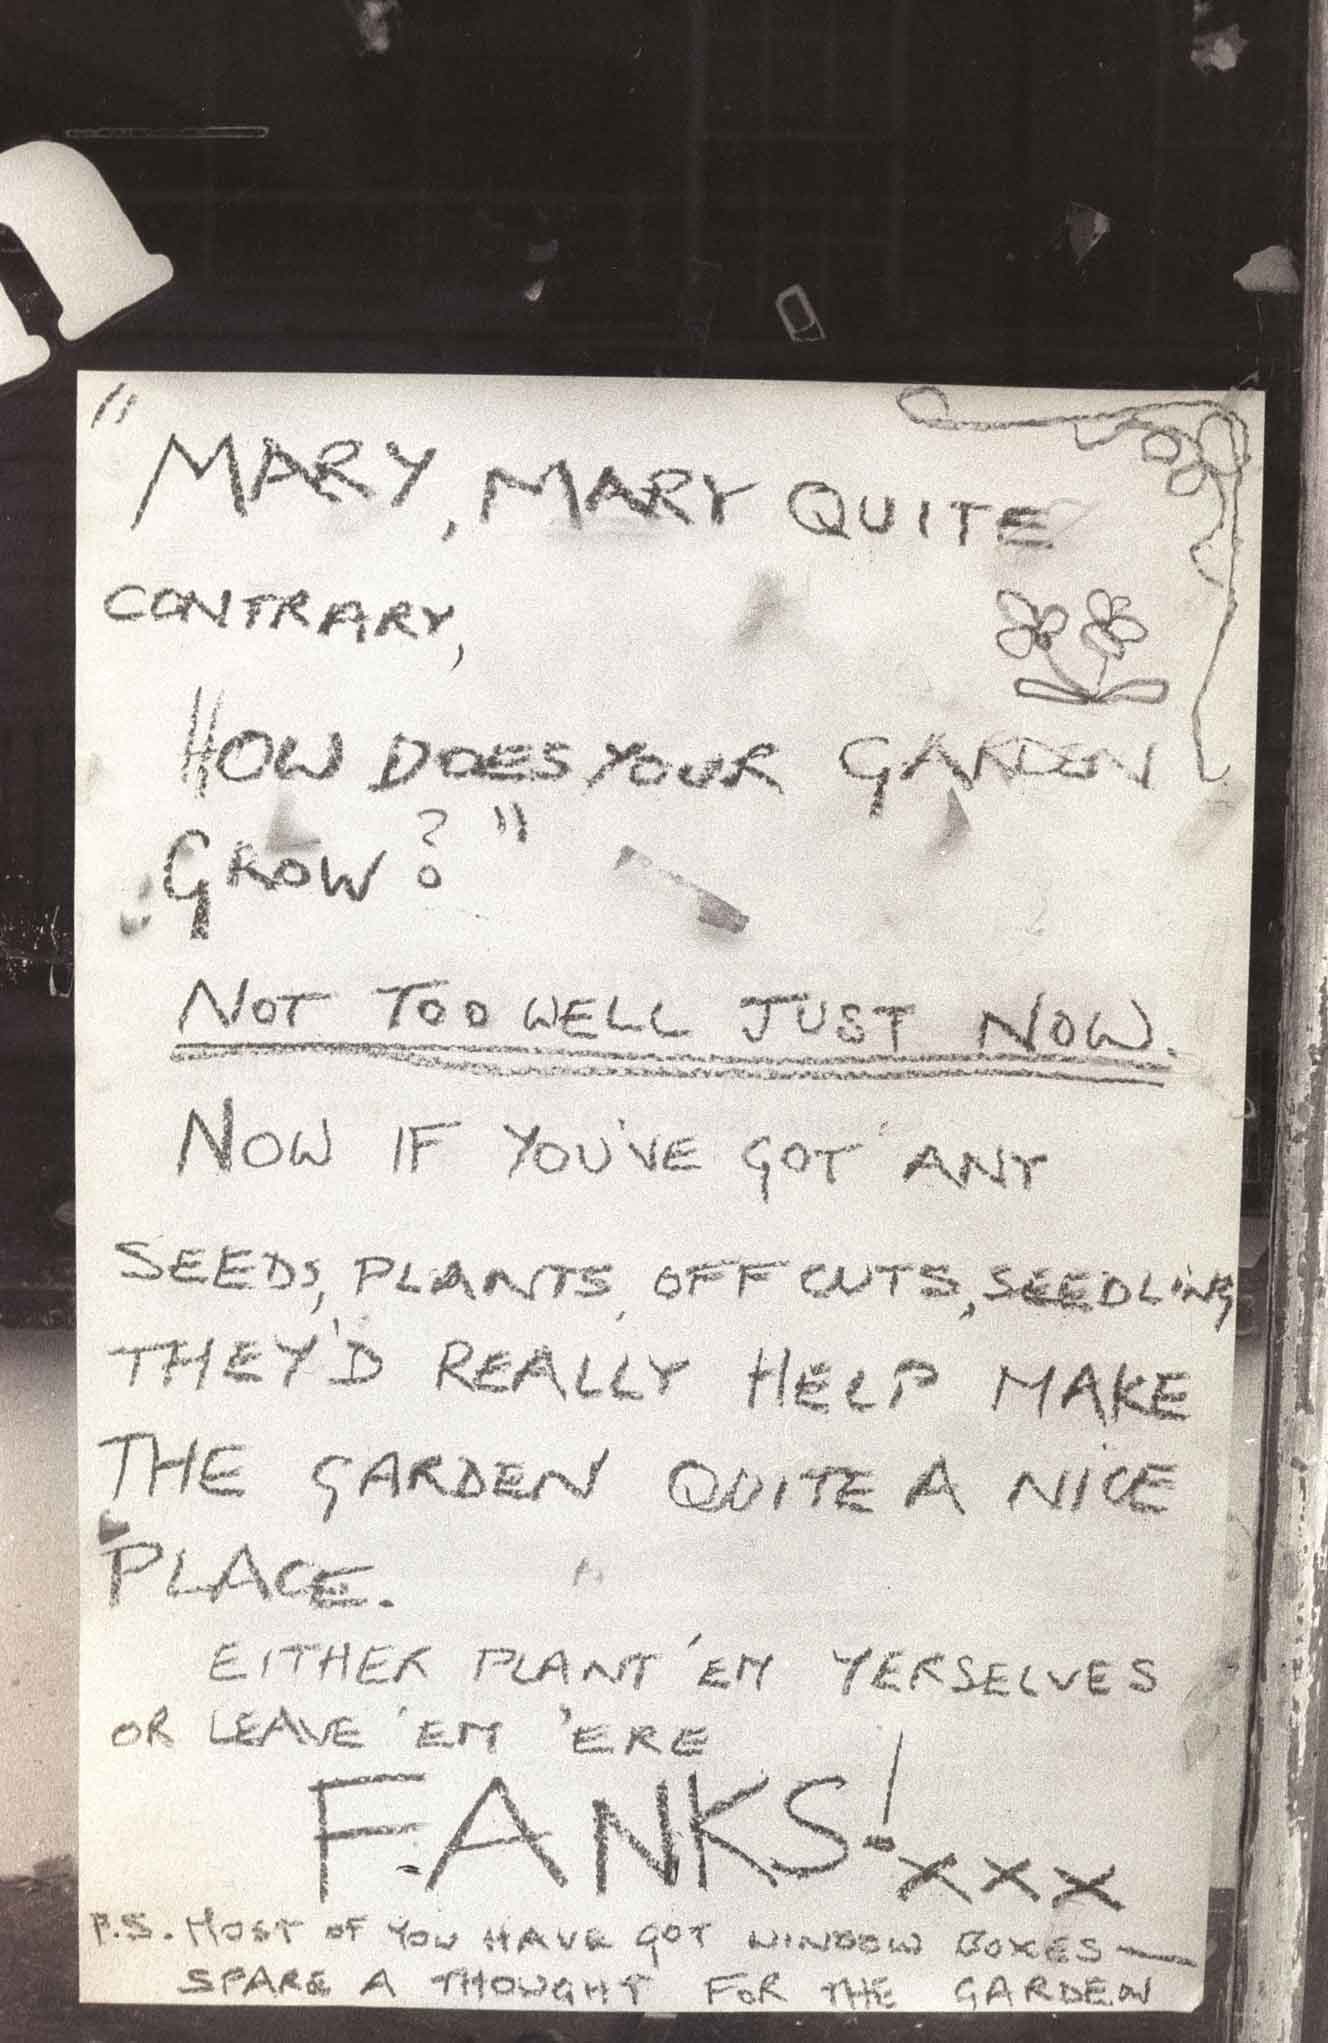 "MARY, MARY QUITE
CONTRARY,
HOW DOES YOUR GARDEN
GROW?"
NOT TOO WELL JUST NOW.
NOW IF YOU'VE GOT ANY
SEEDS, PLANTS, OFF CUTS, SEEDLING
THEY'D REALLY HELP MAKE
THE GARDEN QUITE A NICE
PLACE.
EITHER PLANT 'EM YERSELVES
OR LEAVE 'EM 'ERE
FANKS! xxx
P.S. MOST OF YOU HAVE GOT WINDOW BOXES —
SPARE A THOUGHT FOR THE GARDEN